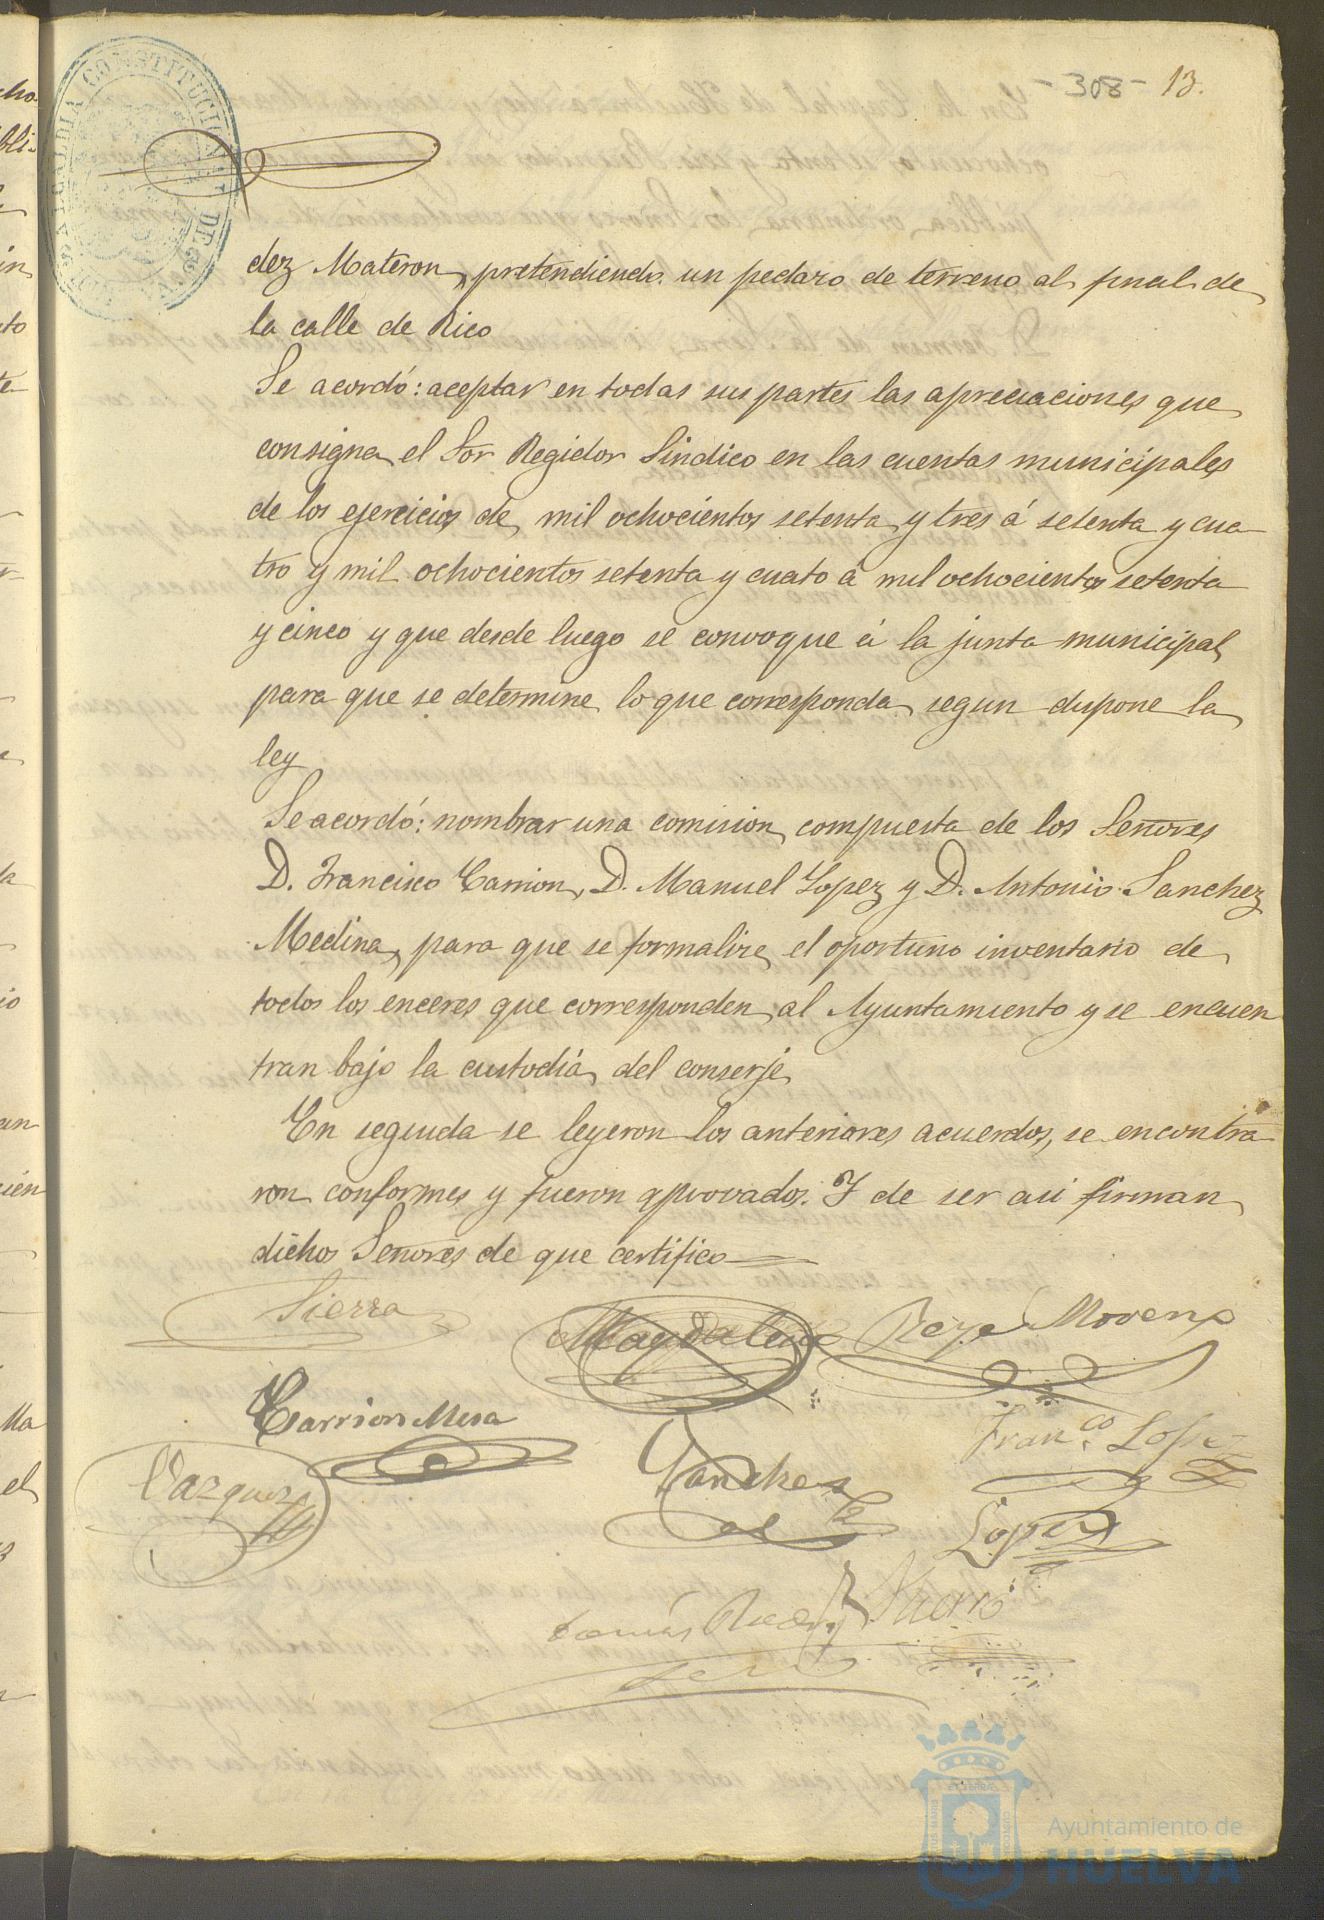 - 308 - 13.
ALCALDIA CONSTITUCIONAL DE
dez Materon, pretendiendo un pedazo de terreno al final de
la calle de Rico
Se acordó: aceptar en todas sus partes las apreciaciones que
consigna el Sor Regidor Sindico en las cuentas municipales
de los ejercicios de mil ochocientos setenta y tres á setenta y cua
tro y mil ochocientos setenta y cuato á mil ochocientos setenta
y cinco y que desde luego se convoque á la junta municipal
para que se determine lo que corresponda segun dispone la
ley
Se acordó: nombrar una comision compuesta de los Señores
D. Francisco Carrion, D. Manuel Lopez y D. Antonio Sanchez
Medina, para que se formalize el oportuno inventario de
todos los enceres que corresponden al Ayuntamiento y se encuen
tran bajo la custodia del conserje
En seguida se leyeron los anteriores acuerdos, se encontra
ron conformes y fueron aprovados. Y de ser asi firman
dichos Señores de que certifico
Sierra
Magdalena
Moreno
Carrion Mesa
Franco Lopez
Vazquez
Sanchez
Lopez
Tomás
Ayuntamiento de
HUELVA